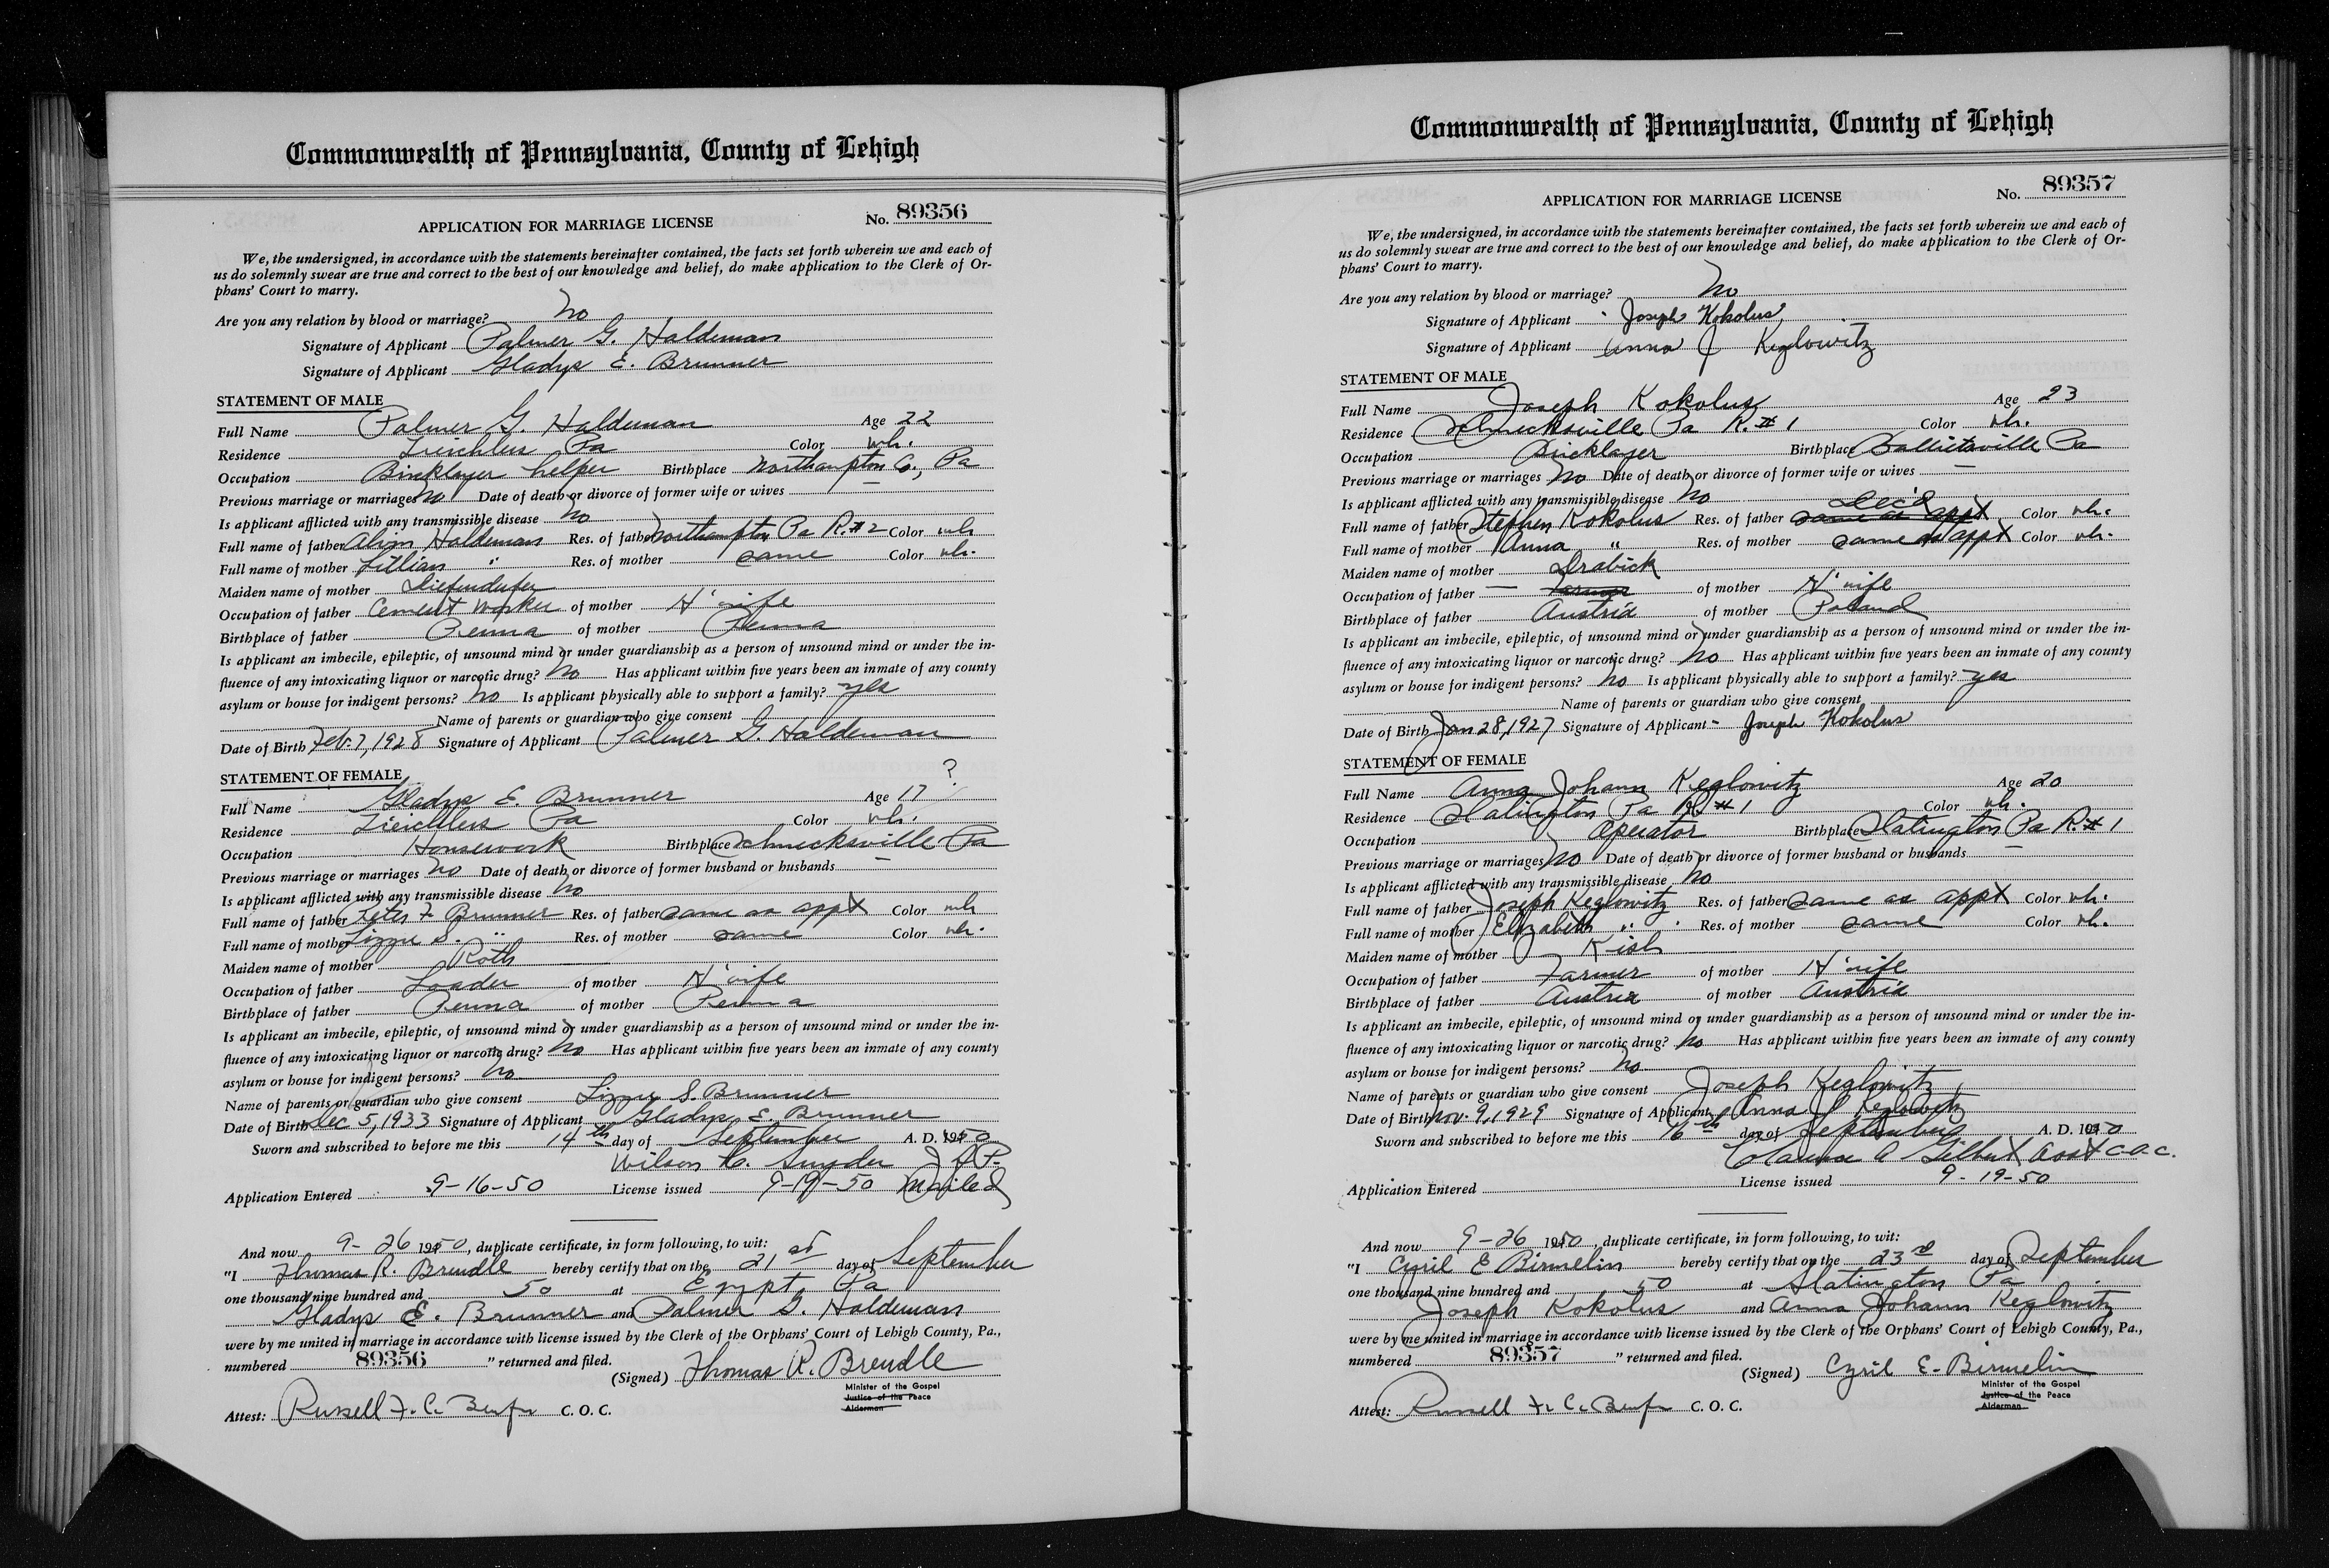 Commonwealth of Pennsylvania, County of Lehigh
APPLICATION FOR MARRIAGE LICENSE No. 89356
We, the undersigned, in accordance with the statements hereinafter contained, the facts set forth wherein we and each of
us do solemnly swear are true and correct to the best of our knowledge and belief, do make application to the Clerk of Or-
phans' Court to marry.
Are you any relation by blood or marriage? No
Signature of Applicant Palmer G. Haldeman
Signature of Applicant Gladys E. Brunner
STATEMENT OF MALE
Full Name Palmer G. Haldeman Age 22
Residence Treichlers Pa Color wh.
Occupation Bricklayer helper Birthplace Northampton Co., Pa
Previous marriage or marriages No Date of death or divorce of former wife or wives —
Is applicant afflicted with any transmissible disease No
Full name of father Haldeman Res. of father Northampton Pa R.#2 Color wh.
Full name of mother Lillian " Res. of mother same Color wh.
Maiden name of mother Diefenderfer
Occupation of father Cement Worker of mother H'wife
Birthplace of father Penna of mother Penna
Is applicant an imbecile, epileptic, of unsound mind or under guardianship as a person of unsound mind or under the in-
fluence of any intoxicating liquor or narcotic drug? No Has applicant within five years been an inmate of any county
asylum or house for indigent persons? No Is applicant physically able to support a family? yes
Name of parents or guardian who give consent
Date of Birth Feb. 7, 1928 Signature of Applicant Palmer G. Haldeman
STATEMENT OF FEMALE ?
Full Name Gladys E. Brunner Age 17
Residence Treichlers Pa Color wh.
Occupation Housework Birthplace Schnecksville Pa
Previous marriage or marriages No Date of death or divorce of former husband or husbands —
Is applicant afflicted with any transmissible disease No
Full name of father Peter F. Brunner Res. of father same as appt Color wh
Full name of mother Lizzie S. " Res. of mother same Color wh.
Maiden name of mother Roth
Occupation of father Loader of mother H'wife
Birthplace of father Penna of mother Penna
Is applicant an imbecile, epileptic, of unsound mind or under guardianship as a person of unsound mind or under the in-
fluence of any intoxicating liquor or narcotic drug? No Has applicant within five years been an inmate of any county
asylum or house for indigent persons? No
Name of parents or guardian who give consent Lizzie S. Brunner
Date of Birth Dec 5, 1933 Signature of Applicant Gladys E. Brunner
Sworn and subscribed to before me this 14th day of September A. D. 1950
Wilson H. Snyder J of P.
Application Entered 9-16-50 License issued 9-19-50 Mailed
And now 9-26 1950, duplicate certificate, in form following, to wit:
"I Thomas R. Brendle hereby certify that on the 21st day of September
one thousand nine hundred and 50 at Egypt, Pa
Gladys E. Brunner and Palmer G. Haldeman
were by me united in marriage in accordance with license issued by the Clerk of the Orphans' Court of Lehigh County, Pa.,
numbered 89356 " returned and filed.
(Signed) Thomas R. Brendle
Minister of the Gospel
Justice of the Peace
Alderman
Attest: Russell F. C. C. O. C.
Commonwealth of Pennsylvania, County of Lehigh
APPLICATION FOR MARRIAGE LICENSE No. 89357
We, the undersigned, in accordance with the statements hereinafter contained, the facts set forth wherein we and each of
us do solemnly swear are true and correct to the best of our knowledge and belief, do make application to the Clerk of Or-
phans' Court to marry.
Are you any relation by blood or marriage? No
Signature of Applicant Joseph Kokolus
Signature of Applicant Anna J Keglowitz
STATEMENT OF MALE
Full Name Joseph Kokolus Age 23
Residence Schnecksville Pa R.#1 Color wh.
Occupation Bricklayer Birthplace Ballietsville Pa
Previous marriage or marriages No Date of death or divorce of former wife or wives —
Is applicant afflicted with any transmissible disease No
Full name of father Stephen Kokolus Res. of father same as appt Dec'd Color wh.
Full name of mother Anna " Res. of mother same as appt Color wh.
Maiden name of mother Drabick
Occupation of father — Farmer of mother H'wife
Birthplace of father Austria of mother Poland
Is applicant an imbecile, epileptic, of unsound mind or under guardianship as a person of unsound mind or under the in-
fluence of any intoxicating liquor or narcotic drug? No Has applicant within five years been an inmate of any county
asylum or house for indigent persons? No Is applicant physically able to support a family? yes
Name of parents or guardian who give consent
Date of Birth Jan 28, 1927 Signature of Applicant Joseph Kokolus
STATEMENT OF FEMALE
Full Name Anna Johann Keglowitz Age 20
Residence Slatington Pa R#1 Color wh.
Occupation Operator Birthplace Slatington Pa R.#1
Previous marriage or marriages No Date of death or divorce of former husband or husbands —
Is applicant afflicted with any transmissible disease No
Full name of father Joseph Keglowitz Res. of father same as appt Color wh.
Full name of mother Elizabeth " Res. of mother same Color wh.
Maiden name of mother Kish
Occupation of father Farmer of mother H'wife
Birthplace of father Austria of mother Austria
Is applicant an imbecile, epileptic, of unsound mind or under guardianship as a person of unsound mind or under the in-
fluence of any intoxicating liquor or narcotic drug? No Has applicant within five years been an inmate of any county
asylum or house for indigent persons? No
Name of parents or guardian who give consent Joseph Keglowitz
Date of Birth Nov. 9, 1929 Signature of Applicant Anna J Keglowitz
Sworn and subscribed to before me this 16th day of September A. D. 1950
A Gilbert Asst C.O.C.
Application Entered License issued 9-19-50
And now 9-26 1950, duplicate certificate, in form following, to wit:
"I Cyril E Birmelin hereby certify that on the 23rd day of September
one thousand nine hundred and 50 at Slatington Pa
Joseph Kokolus and Anna Johann Keglowitz
were by me united in marriage in accordance with license issued by the Clerk of the Orphans' Court of Lehigh County, Pa.,
numbered 89357 " returned and filed.
(Signed) Cyril E. Birmelin
Minister of the Gospel
Justice of the Peace
Alderman
Attest: Russell F. C. C. O. C.